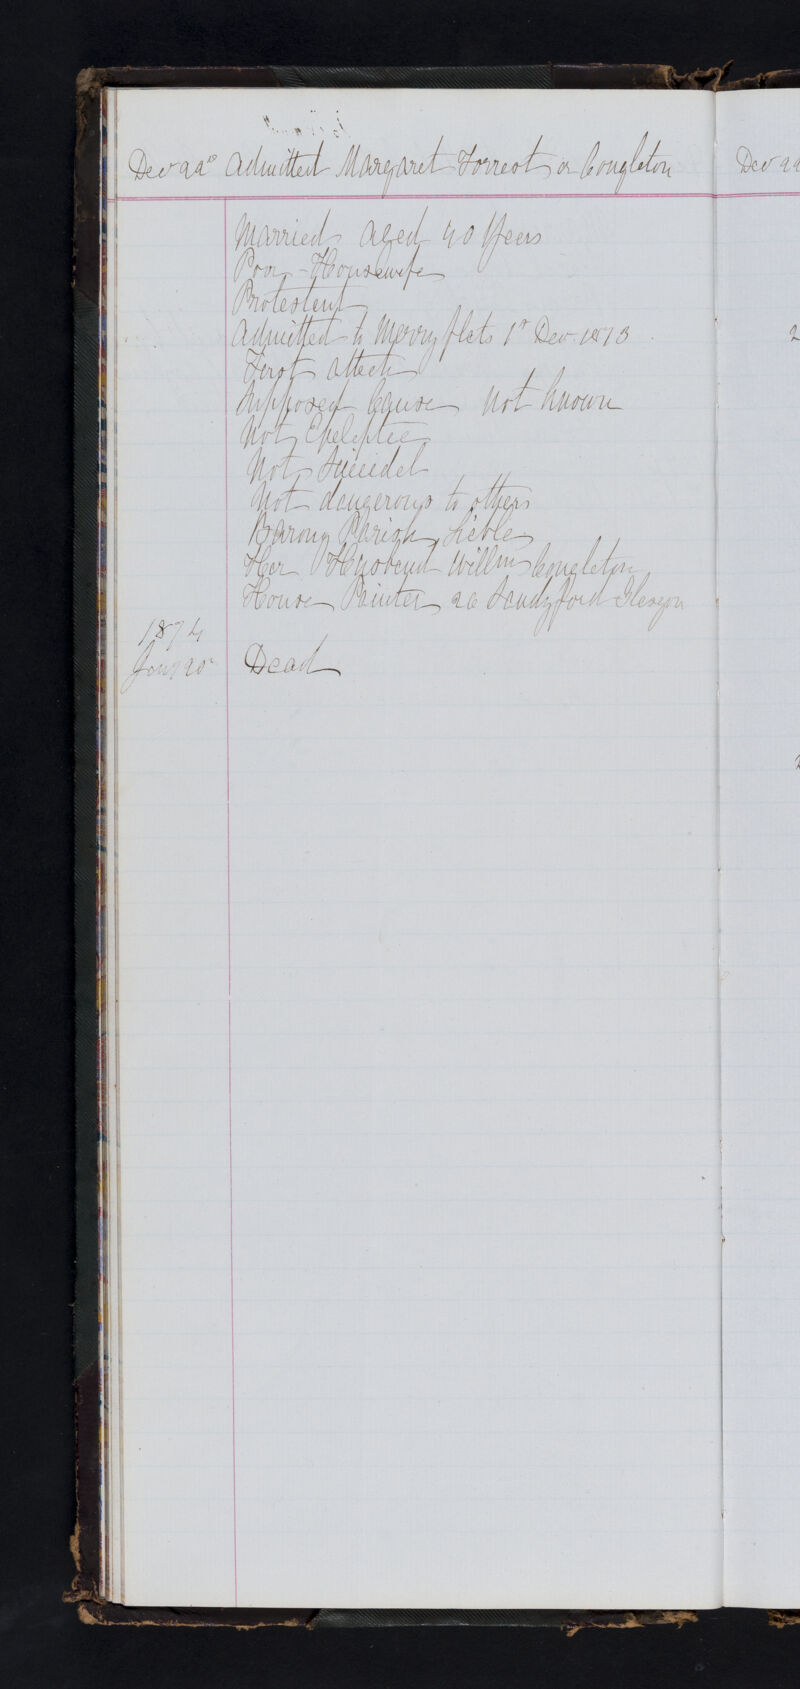 Decr 22d Admitted Margaret Forrest or Congleton
Married aged 40 Years
Poor - Housewife
Protestant
Admitted to Merryflats 1st Decr 1873
First attack
Supposed Cause not known
Not Epileptic
Not Suicidal
Not dangerous to others
Barony Parish liable
Her Husband Willm Congleton
House Painter 26 Sandyford Glasgow
1874
Jany 20 Dead
Dec 22